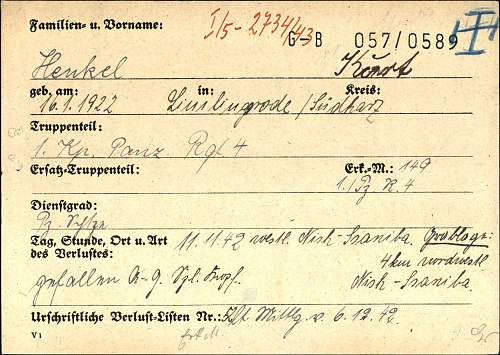 Familien- u. Vorname: I/5-2734/43 G-B 057/0589
Henkel Kurt
geb. am: in: Kreis:
16.1.1922 /Südharz
Truppenteil:
1. Kp. Panz. Rgt. 4
Ersatz-Truppenteil: Erk.-M.: 149
1./Pz R. 4
Dienstgrad:
Pz. Schtz.
Tag, Stunde, Ort u. Art des Verlustes: 11.11.42 westl. Nish-Ssaniba. Grablage:
4 km nordwestl.
gefallen A-G. Spl. Kopf. Nish-Ssaniba
Urschriftliche Verlust-Listen Nr.: Mittlg. v. 6.12.42
V 1